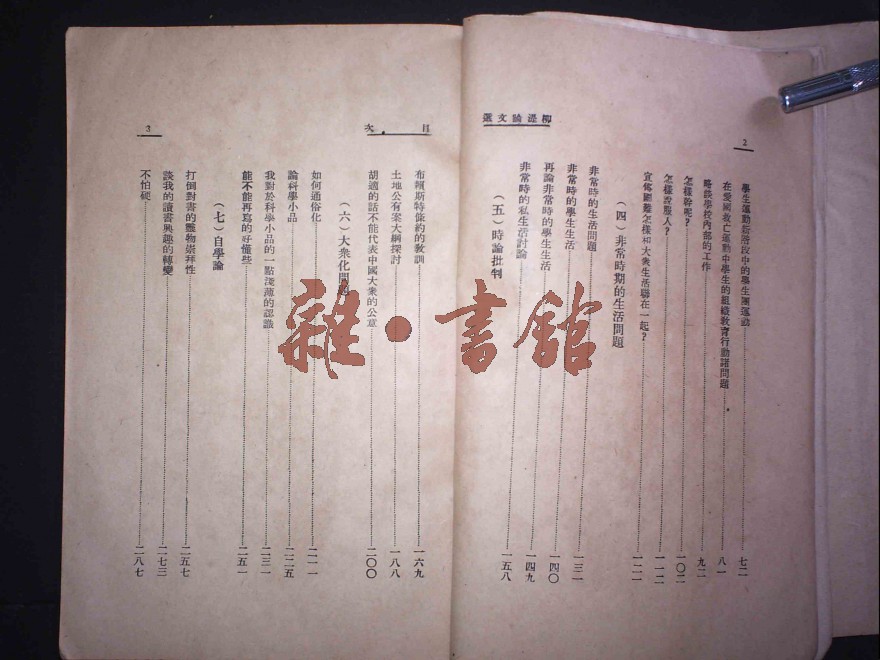 2
柳湜論文選
學生運動新階段中的學生團運論……七二
在愛國救亡運動中學生的組織教育行動諸問題……八一
略談學校內部的工作……九二
怎樣幹呢？……一〇二
怎樣說服人？……一一二
宣傳國難怎樣和大衆生活聯在一起？……一二一
（四）非常時期的生活問題
非常時的生活問題……一三一
非常時的學生生活
再論非常時的學生生活……一四〇
非常時的私生活討論……一四九
（五）時論批判
一五八
目次
3
布賴斯特條約的教訓……一六九
土地公有案大綱探討……一八八
胡適的話不能代表中國大衆的公意……二〇〇
（六）大衆化問題
如何通俗化……二一一
論科學小品……二二五
我對於科學小品的一點淺薄的認識……二三一
能不能再寫的好懂些……二五一
（七）自學論
打倒對書的靈物崇拜性……二五七
談我的讀書興趣的轉變……二七三
不怕硬……二八七
雜·書館